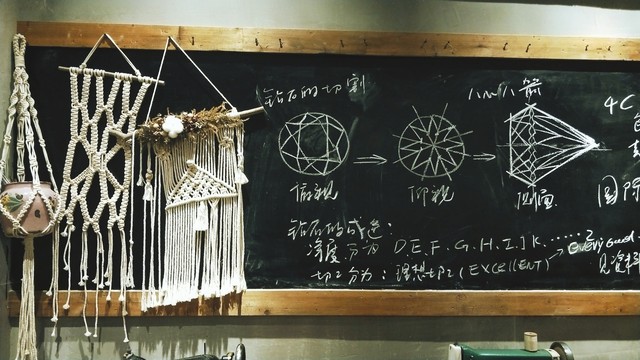 钻石的切割
八心八箭
4C
俯视 仰视
国际
钻石的
深度分为 D.E.F.G.H.I.J K......
切工分为：理想切工(EXCELLENT) → every good
见资料